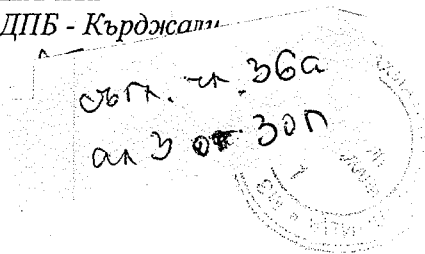 ДПБ - Кърджали
съгл. чл. 36а
ал 3 от ЗОП